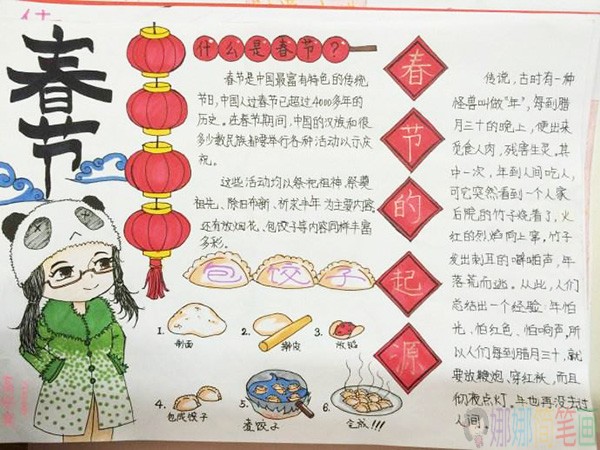 春节
什么是春节？
春节是中国最富有特色的传统
节日,中国人过春节已超过4000多年的
历史。在春节期间,中国的汉族和很
多少数民族都要举行各种活动以示庆
祝。
这些活动均以祭祀祖神、祭奠
祖先、除旧布新、祈求丰年为主要内容,
还有放烟花、包饺子等内容同样丰富
多彩。
包饺子
1.
制面
2.
擀皮
3.
放馅
4.
包成饺子
5.
煮饺子
6.
完成!!!
春节的起源
传说,古时有一种
怪兽叫做"年",每到腊
月三十的晚上,便出来
觅食人肉,残害生灵。其
中一次,年到人间吃人,
可它突然看到一个人家
后院的竹子烧着了,火
红的烈焰向上窜。竹子
发出刺耳的噼啪声,年
落荒而逃。从此,人们
总结出一个经验:年怕
光、怕红色、怕响声,所
以人们每到腊月三十,就
要放鞭炮、穿红袄,而且
彻夜点灯,年也再没去过
人间。
娜娜简笔画